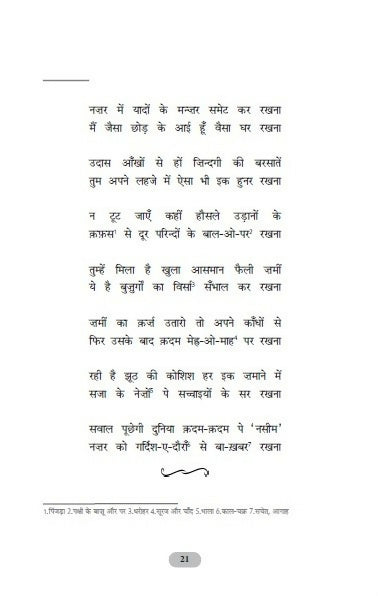 नज़र में यादों के मन्ज़र समेट कर रखना
मैं जैसा छोड़ के आई हूँ वैसा घर रखना
उदास आँखों से हों ज़िन्दगी की बरसातें
तुम अपने लहजे में ऐसा भी इक हुनर रखना
न टूट जाएँ कहीं हौसले उड़ानों के
क़फ़स¹ से दूर परिन्दों के बाल-ओ-पर² रखना
तुम्हें मिला है खुला आसमान फैली ज़मीं
ये है बुज़ुर्गों का विर्सा³ सँभाल कर रखना
ज़मीं का क़र्ज़ उतारो तो अपने काँधों से
फिर उसके बाद क़दम मेह्र-ओ-माह⁴ पर रखना
रही है झूठ की कोशिश हर इक ज़माने में
सजा के नेज़ों⁵ पे सच्चाइयों के सर रखना
सवाल पूछेगी दुनिया क़दम-क़दम पे ‘नसीम’
नज़र को गर्दिश-ए-दौराँ⁶ से बा-ख़बर⁷ रखना
1.पिंजड़ा 2.पक्षी के बाज़ू और पर 3.धरोहर 4.सूरज और चाँद 5.भाला 6.काल-चक्र 7.सचेत, आगाह
21